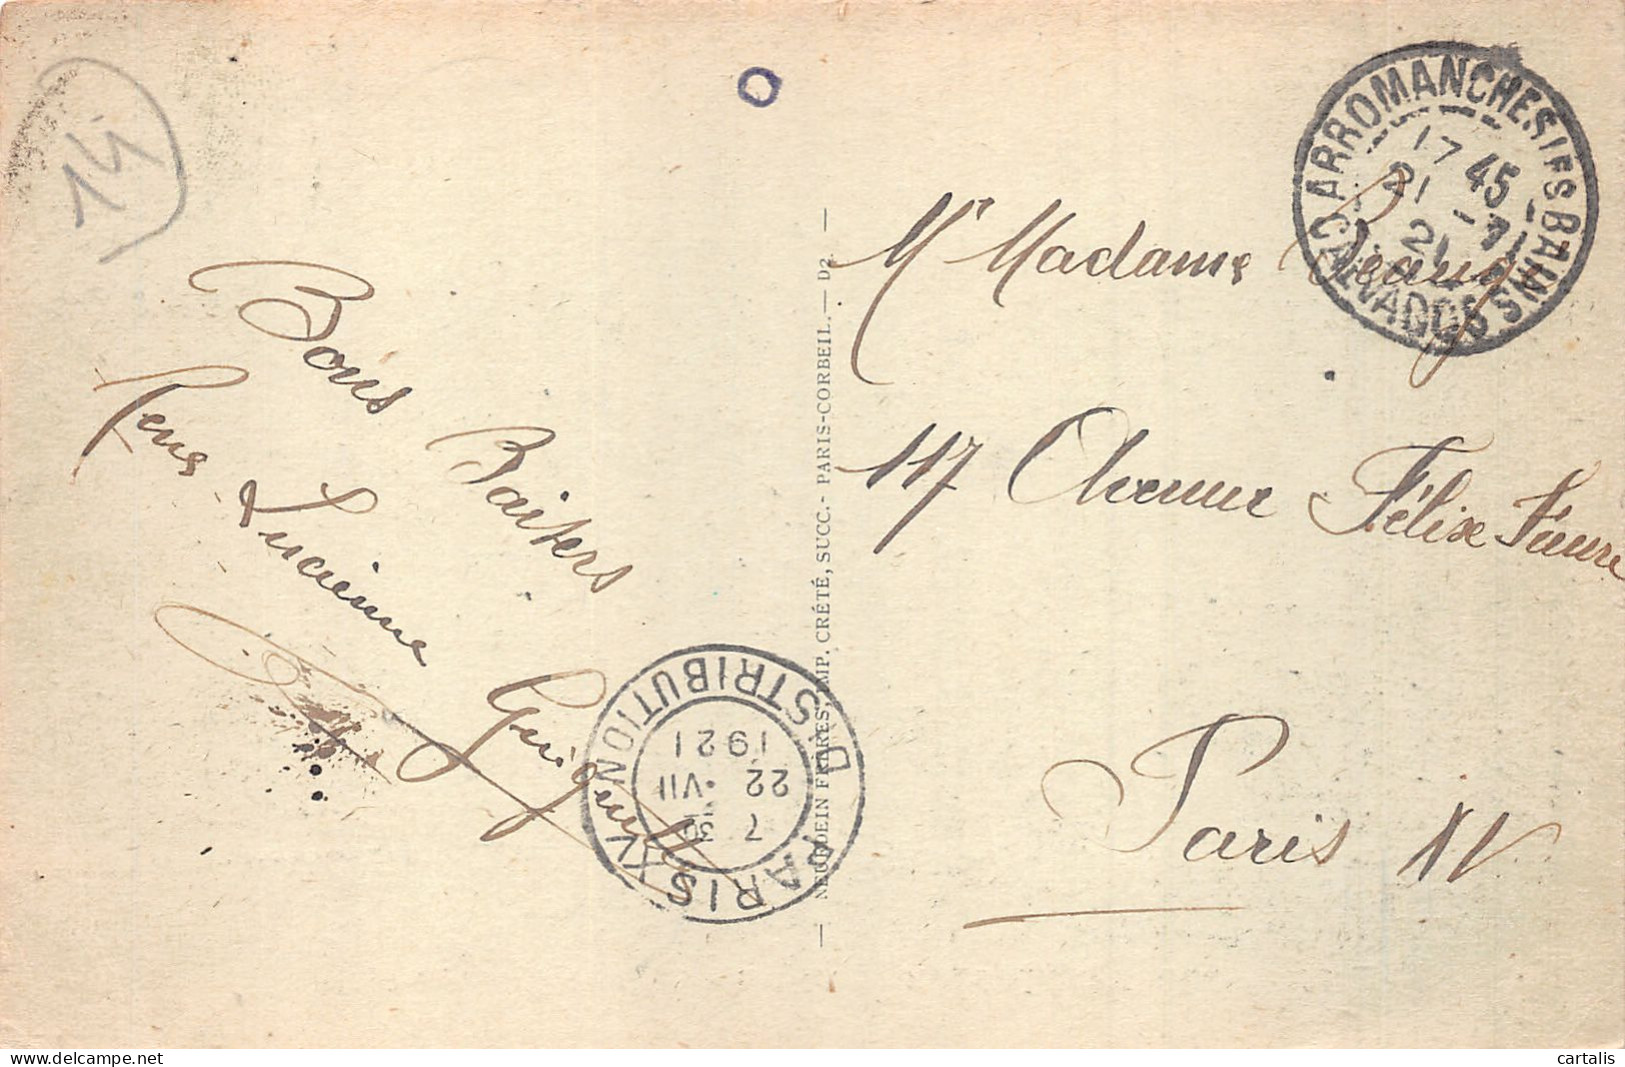 14
Bons Baisers
René & Lucienne
Mr Madame
117 Avenue Félix Faure
Paris XV
ARROMANCHES LES BAINS
17 45
21 -7
21
CALVADOS
PARIS XV DISTRIBUTION
7 30
22 ·VII
1921
— NEURDEIN FRÈRES, IMP. CRÉTÉ, SUCC.- PARIS-CORBEIL.— D2 —
cartalis